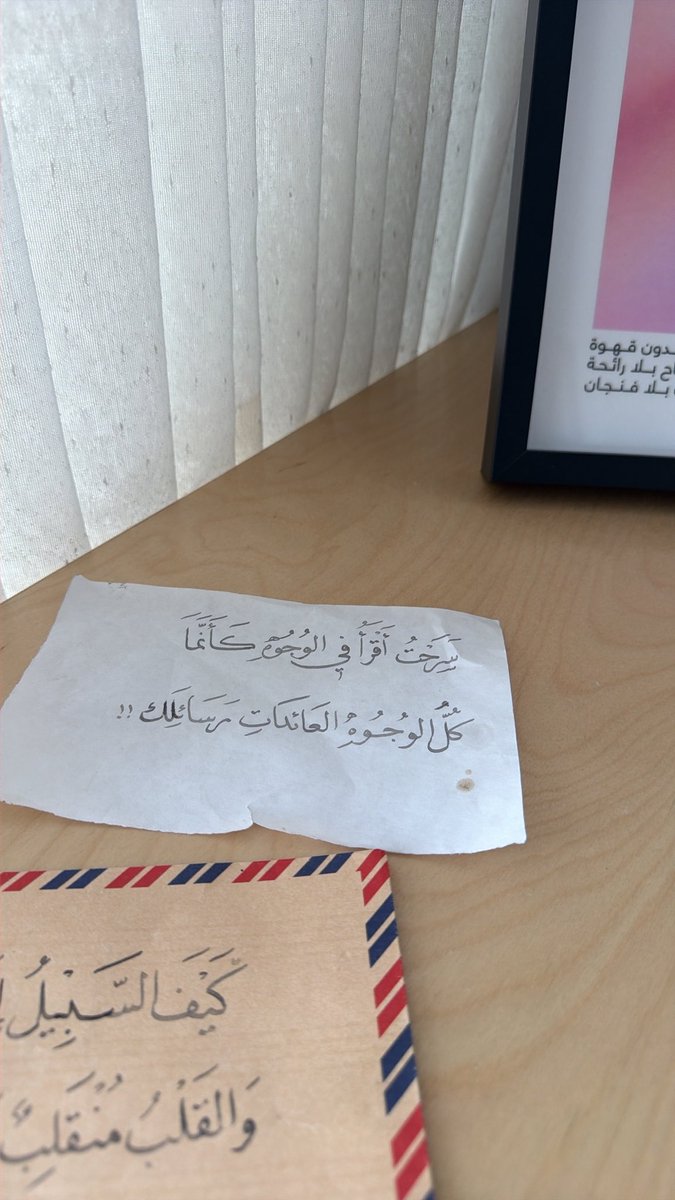 ـدون قهوة
ـاح بلا رائحة
بلا فنجان
سَرَحْتُ أَقْرَأُ في الوُجُوْهِ كَأَنَّمَا
كُلُّ الوُجُوْهِ العَائدَاتِ رَسَائِلَك !!
كَيْفَ السَّبِيْلُ
وَالقَلْبُ مُنْقَلِبٌ